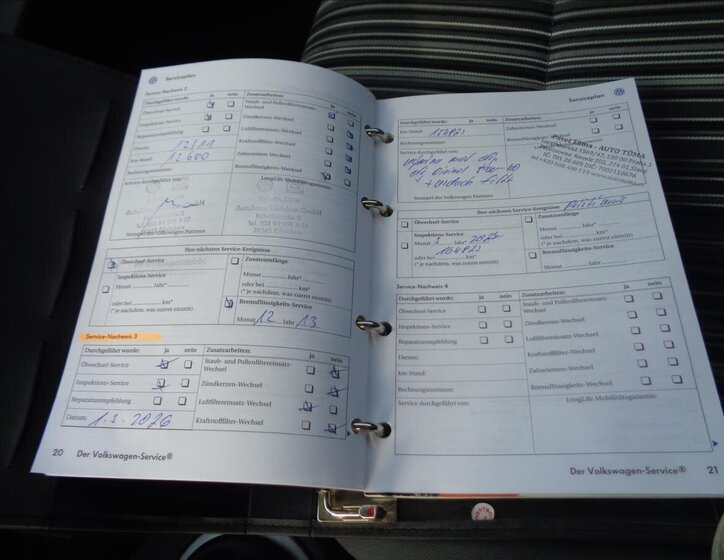 Serviceplan
Service-Nachweis 2
Durchgeführt wurde: ja nein
Ölwechsel-Service
Inspektions-Service
Reparaturempfehlung
Datum: 12/11
km-Stand: 12 600
Rechnungsnummer:
Service durchgeführt von:
Stempel des Volkswagen Partners
Zusatzarbeiten: ja nein
Staub- und Pollenfiltereinsatz-
Wechsel
Zündkerzen-Wechsel
Luftfiltereinsatz-Wechsel
Kraftstofffilter-Wechsel
Zahnriemen-Wechsel
Bremsflüssigkeits-Wechsel
LongLife Mobilitätsgarantie:
Ihre nächsten Service-Ereignisse
Ölwechsel-Service
Inspektions-Service
Monat Jahr*
oder bei km*
(* je nachdem, was zuerst eintritt)
Zusatzumfänge
Monat Jahr*
oder bei km*
(* je nachdem, was zuerst eintritt)
Bremsflüssigkeits-Service
Monat 12 Jahr 13
Service-Nachweis 3
Durchgeführt wurde: ja nein
Ölwechsel-Service
Inspektions-Service
Reparaturempfehlung
Datum: 1.3.2026
Zusatzarbeiten: ja nein
Staub- und Pollenfiltereinsatz-
Wechsel
Zündkerzen-Wechsel
Luftfiltereinsatz-Wechsel
Kraftstofffilter-Wechsel
20 Der Volkswagen-Service®
Serviceplan
Durchgeführt wurde: ja nein
km-Stand:
Rechnungsnummer:
Service durchgeführt von:
Stempel des Volkswagen Partners
Zusatzarbeiten: ja nein
Zahnriemen-Wechsel
Bremsflüssigkeits-Wechsel
Pavel Tůma - AUTO TŮMA
Ihre nächsten Service-Ereignisse
Ölwechsel-Service
Inspektions-Service
Monat Jahr
oder bei km*
(* je nachdem, was zuerst eintritt)
Zusatzumfänge
Monat Jahr*
oder bei km*
(* je nachdem, was zuerst eintritt)
Bremsflüssigkeits-Service
Monat Jahr
Service-Nachweis 4
Durchgeführt wurde: ja nein
Ölwechsel-Service
Inspektions-Service
Reparaturempfehlung
Datum:
km-Stand:
Rechnungsnummer:
Service durchgeführt von:
Zusatzarbeiten: ja nein
Staub- und Pollenfiltereinsatz-
Wechsel
Zündkerzen-Wechsel
Luftfiltereinsatz-Wechsel
Kraftstofffilter-Wechsel
Zahnriemen-Wechsel
Bremsflüssigkeits-Wechsel
LongLife Mobilitätsgarantie:
Der Volkswagen-Service® 21